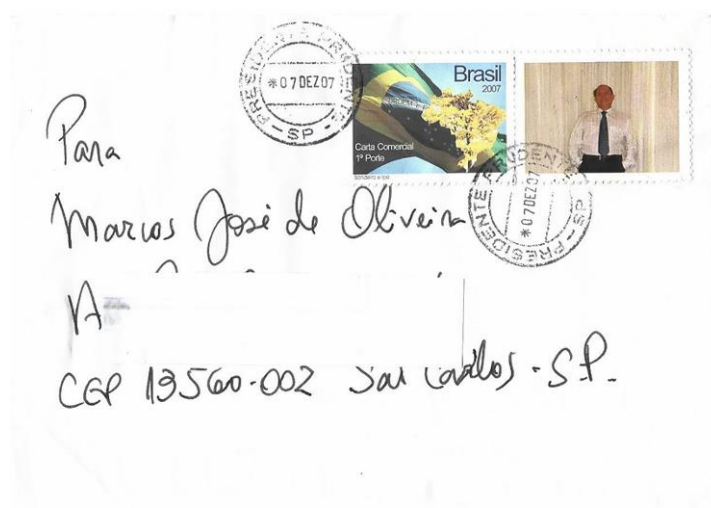 PRESIDENTE PRUDENTE - SP -
*07 DEZ 07
Brasil
2007
Carta Comercial
1º Porte
PRESIDENTE PRUDENTE - SP -
*07 DEZ 07
Para
Marcos José de Oliveira
A
CEP 13560-002 São Carlos - S.P.